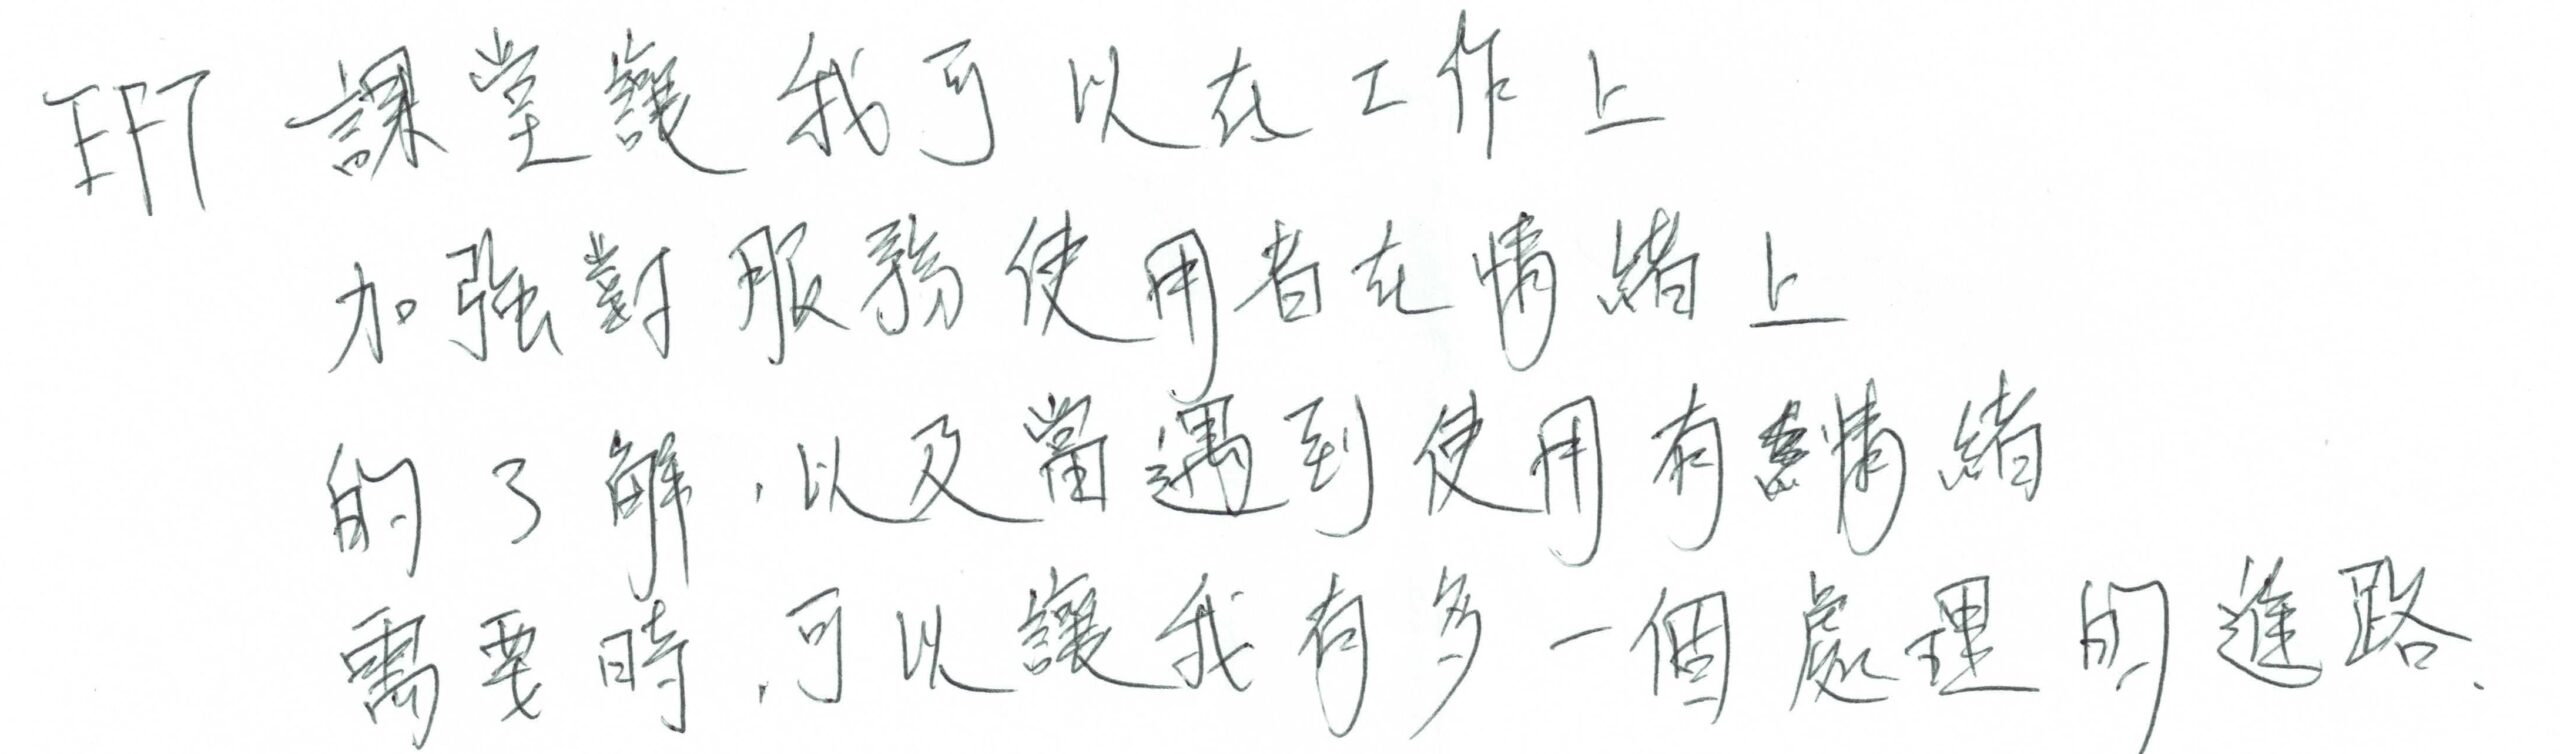 EFT 課堂讓我可以在工作上
加強對服務使用者在情緒上
的了解，以及當遇到使用有情緒
需要時，可以讓我有多一個處理的進路.